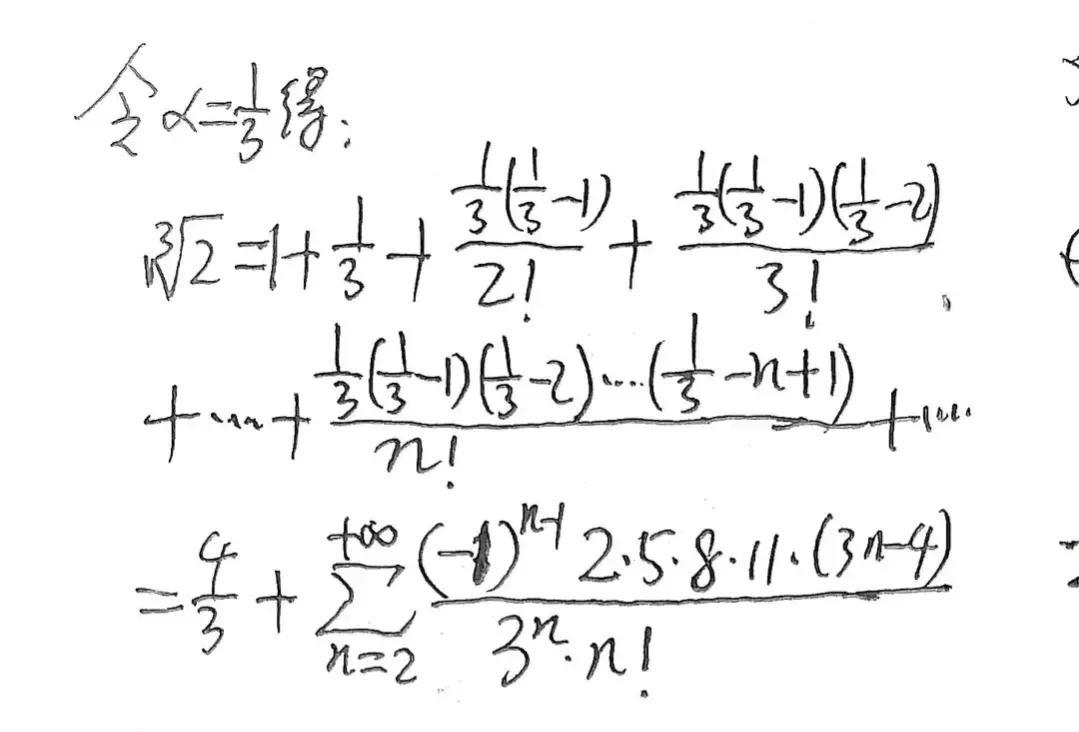 令 α=1/3 得:
∛2 = 1 + 1/3 + (1/3(1/3-1))/2! + (1/3(1/3-1)(1/3-2))/3!
+ ⋯ + (1/3(1/3-1)(1/3-2)⋯(1/3-n+1))/n! + ⋯
= 4/3 + ∑_{n=2}^{+∞} ((-1)^{n-1} 2·5·8·11·(3n-4))/(3^n·n!)